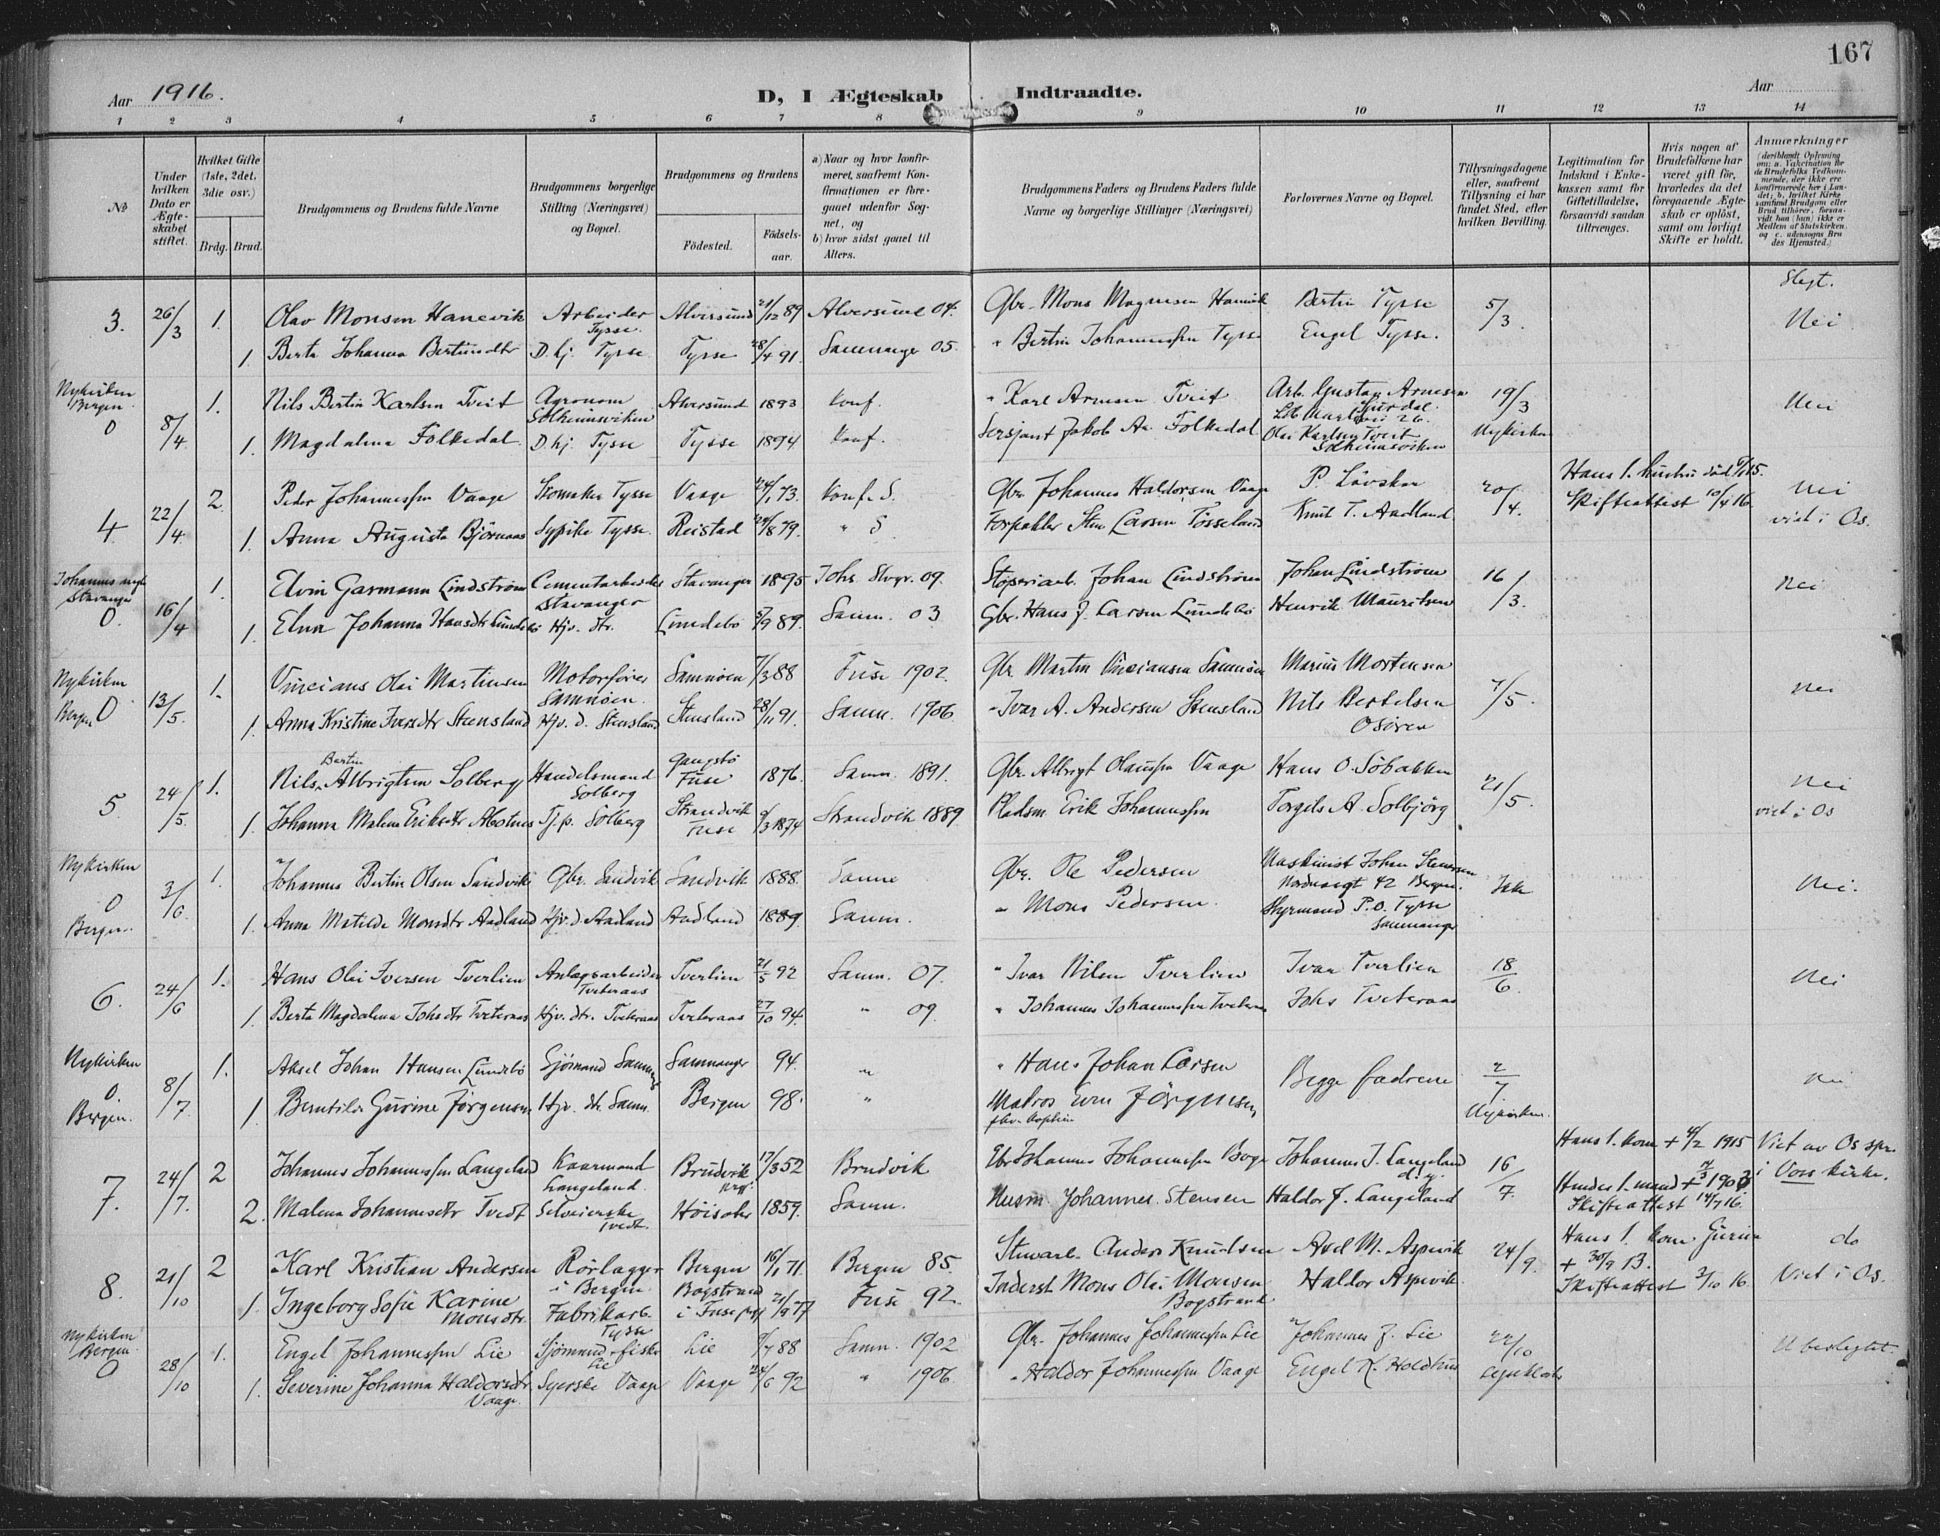 167
Aar 1916.
D, I Ægteskab Indtraadte.
Aar
1 2 3 4 5 6 7 8 9 10 11 12 13 14
№
Under hvilken Dato er Ægteskabet stiftet.
Hvilket Gifte (1ste, 2det, 3die osv.)
Brdg. Brud.
Brudgommens og Brudens fulde Navne
Brudgommens borgerlige Stilling (Næringsvei) og Bopæl.
Brudgommens og Brudens
Födested. Födsels-aar.
a) Naar og hvor konfirmeret, saafremt Konfirmationen er foregaaet udenfor Sognet, og
b) hvor sidst gaaet til Alters.
Brudgommens Faders og Brudens Faders fulde Navne og borgerlige Stillinger (Næringsvei)
Forlovernes Navne og Bopæl.
Tillysningsdagene eller, saafremt Tillysning ei har fundet Sted, efter hvilken Bevilling.
Legitimation for Indskud i Enkekassen samt for Giftetilladelse, forsaavidt saadan tiltrænges.
Hvis nogen af Brudefolkene har været gift før, hvorledes da det foregaaende Ægteskab er oplöst, samt om lovligt Skifte er holdt.
Anmærkninger
Slegt.
3. 26/3 1. Olav Monsen Hanevik Arbeider Tysse. Alversund 21/12 89 Alversund 04. Gbr. Mons Magnesen Hanevik Bertin Tysse 5/3. Nei
1 Berta Johanna Bertinsdtr D. hj. Tysse Tysse 28/4 91. Samnanger 05. " Bertin Johannessen Tysse Engel Tysse.
Nykirken Bergen 0 8/4 1. Nils Bertin Karlsen Tveit Agronom Solheimsviken Alversund 1893 konf. " Karl Arnesen Tveit Arb. Gustav Arnesen 19/3 Nei
1. Magdalena Folkedal D. hj. Tysse Tysse 1894 konf. Sersjant Jakob An. Folkedal Olai Karlsen Tveit Solheimsviken Nykirken
4. 22/4 2. Peder Johannessen Vaage Skomaker Tysse Vaage 24/1 73. Konf. S. Gbr. Johannes Haldorsen Vaage P. Lövskar 20/4. Hans 1. hustru död Skifteattest 10/4 16. Nei
1. Anna Augusta Björnaas Sypike Tysse. Reistad 29/8 79. " S Forpakter Sten Larsen Tösseland Knut T. Aadland viet i Os.
Johannes Stavanger 0. 16/4 1. Elvin Garmann Lindström Cementarbeider Stavanger Stavanger 1895 Johs. Stvgr. 09. Johan Lindström Johan Lindström 16/3. Nei
1. Elna Johanna Hansdtr Lundebö Hjv. dtr. Lundebö 5/9 89. Samn. 03 Gbr. Hans J. Larsen Lundebö Henrik Mauritsen
Nykirken Bergen 0 13/5. 1. Vincians Olai Martinsen Motorförer Samnöen. Samnöen 7/3 88 Fuse 1902. Gbr. Martin Vinciansen Samnöen Marius Mortensen 7/5. Nei
1. Anna Kristine Iversdtr Stensland Hjv. d. Stensland Stensland 28/11 91. Samn. 1906 " Ivar A. Andersen Stensland Nils Bertelsen Osören
5 24/5. 1. Nils Bertin Albrigtsen Solberg Handelsmand Solberg Gangstö Fuse 1876. Samn. 1891. Gbr. Albrigt Olaussen Vaage Hans O. Söbakken 21/5. Nei
1. Johanna Malene Eriksdtr Abotnes Tj.p. Solberg Strandvik Fuse 9/3 1874 Strandvik 1889 Pladsm. Erik Johannessen Torgels A. Solbjörg viet i Os
Nykirken 0 Bergen. 3/6 1. Johannes Bertin Olsen Sandvik Gbr. Sandvik Sandvik 1888. Samn. Gbr. Ole Pedersen Maskinist Johan Stenersen 42 Bergen. Nei.
1. Anna Matilde Monsdtr Aadland Hjv. d. Aadland Aadland 1889. Samn. " Mons Pedersen. Styrmand P. O. Tysse Samnanger
6. 24/6 1. Hans Olai Iversen Tverlien Anlægsarbeider Tveteraas Tverlien 21/5 92 Samn. 07. " Ivar Nilsen Tverlien Ivar Tverlien 18/6 Nei
1. Berta Magdalena Johsdtr Tveteraas Hjv. dtr. Tveteraas Tveteraas 27/10 94. " 09. " Johannes Johannessen Tveteraas Johs Tveteraas
Nykirken 0 Bergen. 8/7 1. Aksel Johan Hansen Lundebö Sjömand Samn. Samnanger 94. " " Hans Johan Larsen Begge fædrene 2/7 Nykirken. Nei
1. Berntilde Gurine Jörgensen Hjv. dtr. Samn. Bergen 98. " Matros Even Jörgensen
7. 24/7. 2 Johannes Johannessen Langeland Kaarmand Langeland. Brudvik prgj. 17/3 52 Brudvik Johannes Johannessen Johannes J. Langeland d. y. 16/7. Hans 1. kone + 4/2 1915 Viet av Os spr. i Voss kirke.
2. Malena Johannesdtr Tvedt Selveierske Tvedt. Höisæter 1859. Samn. Husm. Johannes Stensen Haldor J. Langeland Hendes 1. mand + 1903 Skifteattest 14/7 16.
8. 21/10 2 Karl Kristian Andersen Rörlægger i Bergen Bergen 16/1 71. Bergen 85. Stuearb. Anders Knudsen Axel M. Aspevik 24/9. Hans 1. kone Gurine + 30/9 13. Skifteattest 3/10 16. do
1. Ingeborg Sofie Karine Monsdtr. Fabrikarb. Tysse Bogstrand i Fuse prgj 21/9 77 Fuse 92. Inderst Mons Olai Monsen Bogstrand. Haldor Aspevik. Viet i Os.
Nykirken Bergen. 0 28/10 1. Engel Johannessen Lie Sjömand fisker Lie Lie 88 Samn. 1902 Gbr. Johannes Johannessen Lie Johannes J. Lie 22/10 Ubeslegtet.
1. Severine Johanna Haldorsdtr Vaage. Syerske Vaage Vaage 24/6 92 " 1906. " Haldor Johannessen Vaage Engel K. Holdhus